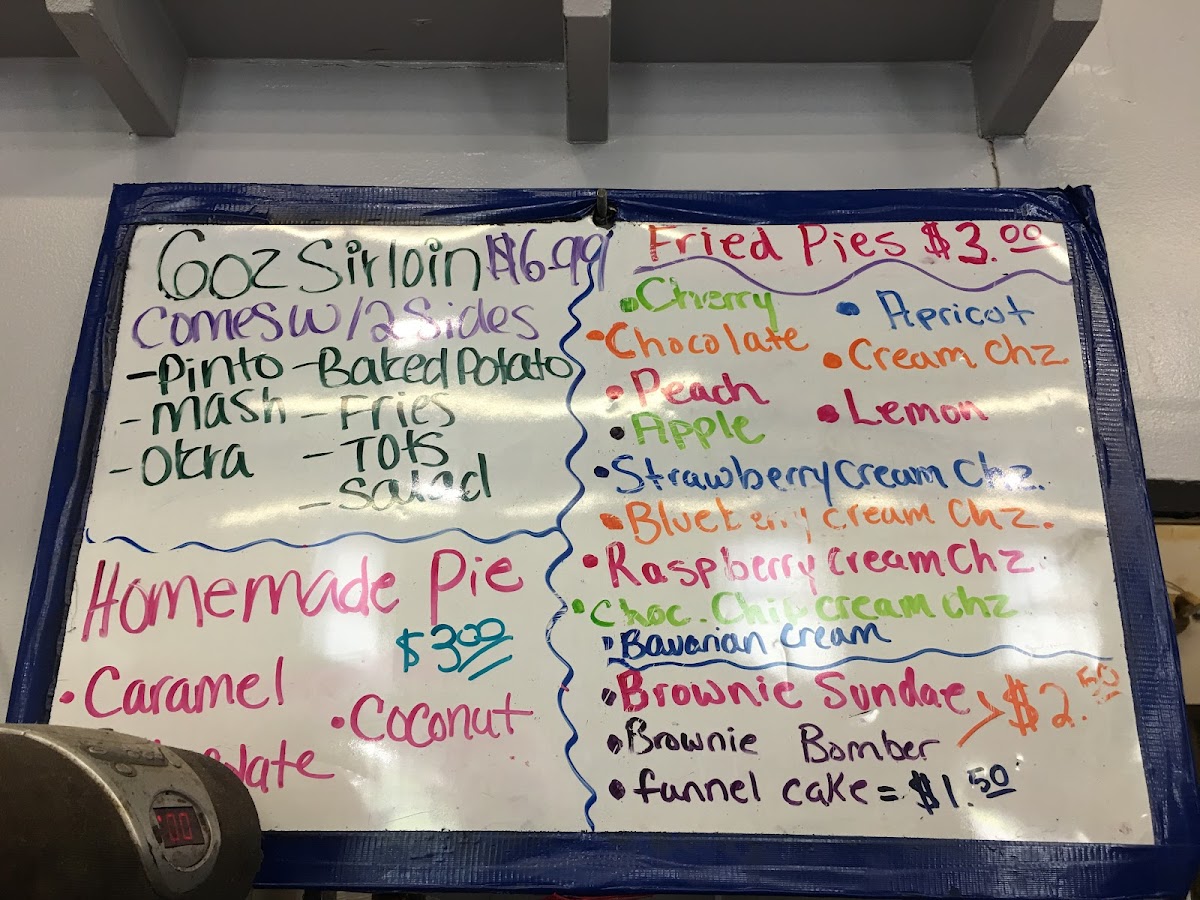 6oz Sirloin $6.99
Comes w/2 Sides
- Pinto - Baked Potato
- Mash - Fries
- Okra - Tots
- Salad
Homemade Pie
$3.00
• Caramel
• Coconut
Fried Pies $3.00
• Cherry • Apricot
• Chocolate • Cream Chz
• Peach • Lemon
• Apple
• Strawberry Cream Chz.
• Blueberry cream Chz.
• Raspberry Cream Chz.
• Choc. Chip cream chz
• Bavarian cream
• Brownie Sundae > $2.50
• Brownie Bomber
• funnel cake = $1.50
:00